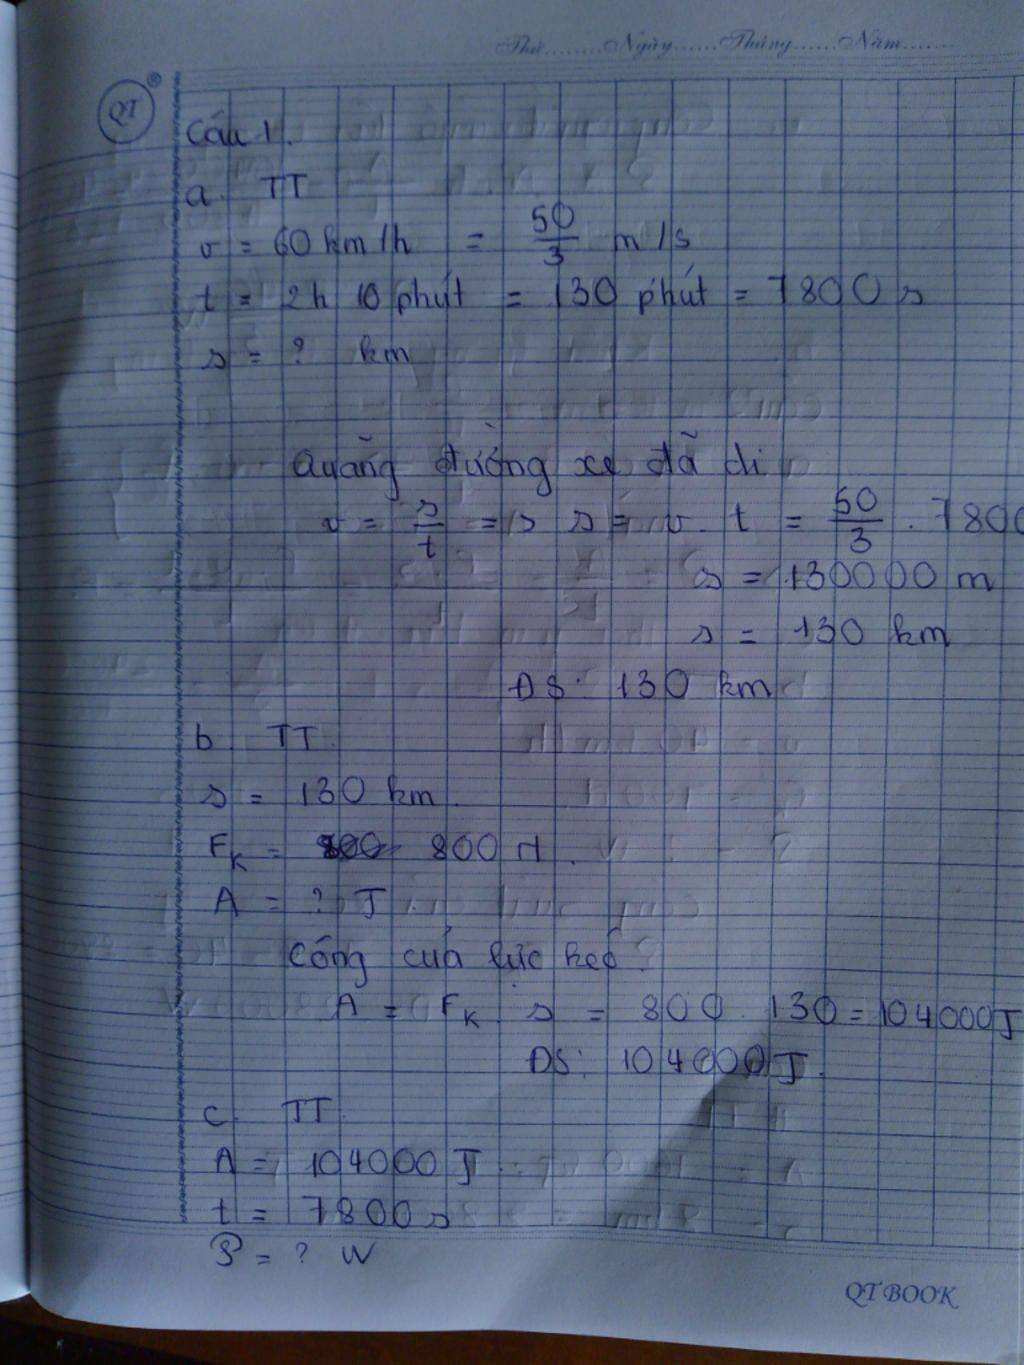 Thứ........Ngày......Tháng......Năm.......
QT
Câu 1.
a. TT
v = 60 km/h = 50/3 m/s
t = 2h 10 phút = 130 phút = 7800 s
s = ? km
Quãng đường xe đã đi
v = s/t => s = v. t = 50/3 . 7800
s = 130000 m
s = 130 km
ĐS: 130 km
b. TT.
s = 130 km.
FK = 800 N.
A = ? J.
Công của lực kéo?
A = FK. s = 800. 130 = 104000J
ĐS: 104000J.
c. TT.
A = 104000 J.
t = 7800 s
P = ? W
QT BOOK